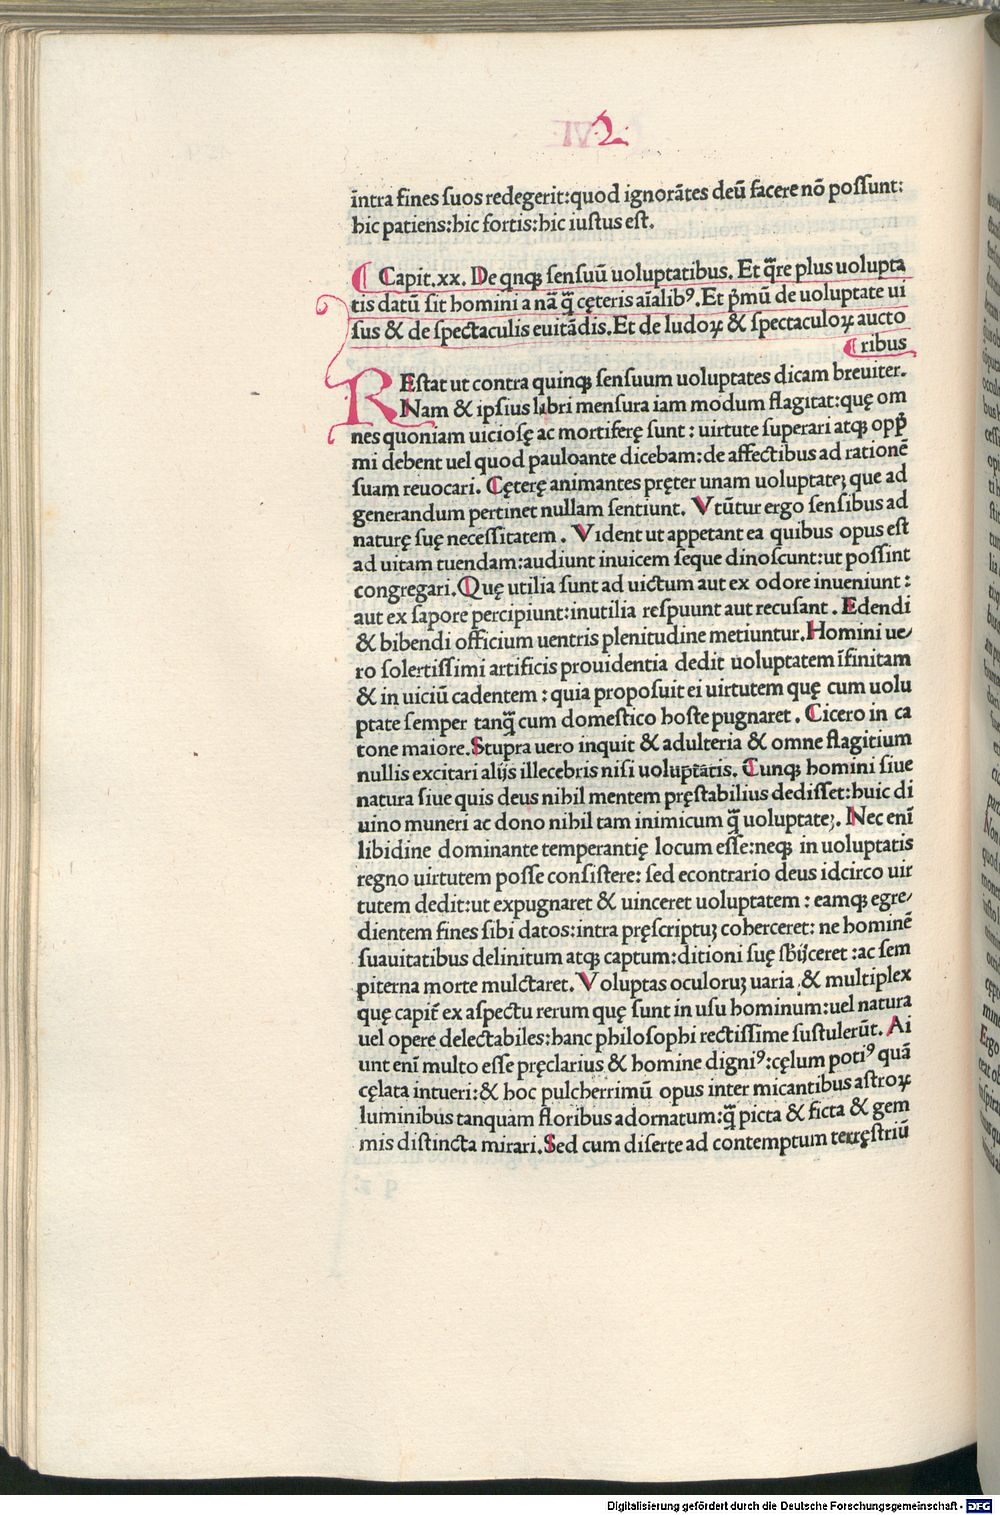 .2.
īntra fines ſuos redegerit:quod ignorātes deū facere nō poſſunt:
hic patiens:hic fortis:hic iuſtus eſt.
¶ Capit.xx. De qnqꝫ ſenſuū uoluptatibus. Et q̄re plus uolupta
tis datū ſit homini a nā q̄ cęteris aīalibꝰ.Et p̄mū de uoluptate ui
ſus & de ſpectaculis euitādis.Et de ludoꝝ & ſpectaculoꝝ aucto
¶ ribus
REſtat ut contra quinqꝫ ſenſuum uoluptates dicam breuiter.
Nam & ipſius libri menſura iam modum flagitat:quę om
nes quoniam uicioſę ac mortiferę ſunt : uirtute ſuperari atqꝫ opp̄
mi debent uel quod pauloante dicebam:de affectibus ad rationē
ſuam reuocari. Cęterę animantes pręter unam uoluptateꝫ que ad
generandum pertinet nullam ſentiunt. Vtūtur ergo ſenſibus ad
naturę ſuę neceſſitatem . Vident ut appetant ea quibus opus eſt
ad uitam tuendam:audiunt inuicem ſeque dinoſcunt:ut poſſint
congregari.Quę utilia ſunt ad uictum aut ex odore inueniunt :
aut ex ſapore percipiunt:inutilia reſpuunt aut recuſant . Edendi
& bibendi officium uentris plenitudine metiuntur.Homini ue/
ro ſolertiſſimi artificis prouidentia dedit uoluptatem īfinitam
& in uiciū cadentem : quia propoſuit ei uirtutem quę cum uolu
ptate ſemper tanq̄ cum domeſtico hoſte pugnaret . Cicero in ca
tone maiore.Stupra uero inquit & adulteria & omne flagitium
nullis excitari alijs illecebris niſi uoluptatis. Cunqꝫ homini ſiue
natura ſiue quis deus nihil mentem pręſtabilius dediſſet:huic di
uino muneri ac dono nihil tam inimicum q̄ uoluptateꝫ. Nec enī
libidine dominante temperantię locum eſſe:neqꝫ in uoluptatis
regno uirtutem poſſe conſiſtere: ſed econtrario deus idcirco uir
tutem dedit:ut expugnaret & uinceret uoluptatem : eamqꝫ egre/
dientem fines ſibi datos:intra pręſcriptuꝫ coherceret: ne hominē
ſuauitatibus delinitum atqꝫ captum:ditioni ſuę ſb̄ijceret :ac ſem
piterna morte mulctaret. Voluptas oculoruꝫ uaria & multiplex
quę capit̄ ex aſpectu rerum quę ſunt in uſu hominum:uel natura
uel opere delectabiles:hanc philoſophi rectiſſime ſuſtulerūt. Ai
unt enī multo eſſe pręclarius & homine digniꝰ:cęlum potiꝰ quā
cęlata intueri:& hoc pulcherrimū opus inter micantibus aſtroꝝ
luminibus tanquam floribus adornatum:q̄ picta & ficta & gem
mis diſtincta mirari.Sed cum diſerte ad contemptum terręſtriū
Digitalisierung gefördert durch die Deutsche Forschungsgemeinschaft - DFG